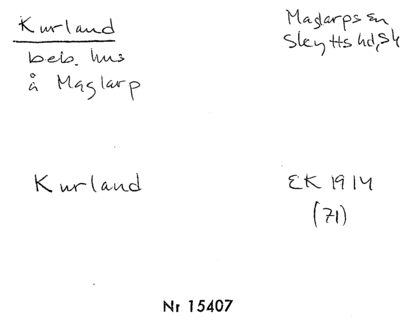 Kurland
Maglarps sn
Skytts hd, Sk
beb. hus
å Maglarp
Kurland
EK 1914
(71)
Nr 15407